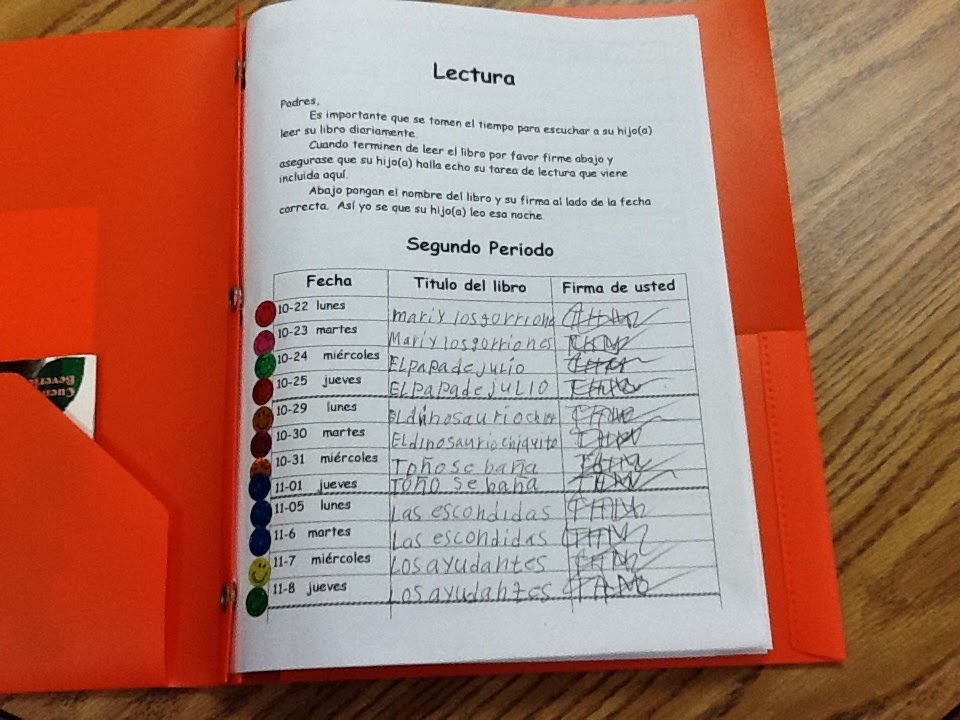 Lectura
Padres,
Es importante que se tomen el tiempo para escuchar a su hijo(a)
leer su libro diariamente.
Cuando terminen de leer el libro por favor firme abajo y
asegurase que su hijo(a) halla echo su tarea de lectura que viene
incluida aquí.
Abajo pongan el nombre del libro y su firma al lado de la fecha
correcta. Así yo se que su hijo(a) leo esa noche.
Segundo Periodo
Fecha Titulo del libro Firma de usted
10-22 lunes mari y los gorriones
10-23 martes Mari y los gorriones
10-24 miércoles El papa de julio
10-25 jueves EL papa de juLio
10-29 lunes El dinosaurio
10-30 martes El dinosaurio chiquito
10-31 miércoles Toño se baña
11-01 jueves Toño se baña
11-05 lunes Las escondidas
11-6 martes Las escondidas
11-7 miércoles Los ayudantes
11-8 jueves Los ayudantes